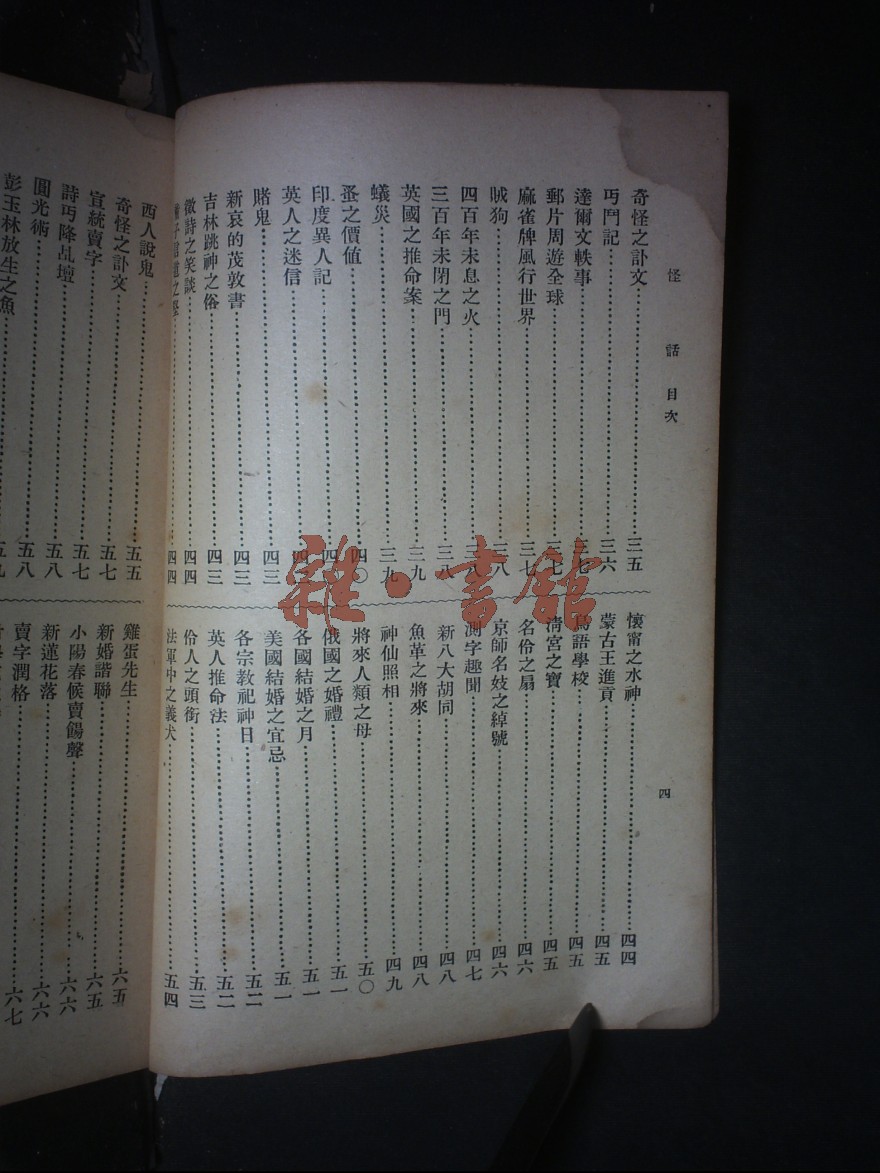 怪話目次
四
奇怪之訃文 三五
丐鬥記 三六
達爾文軼事 三七
郵片周遊全球 三七
麻雀牌風行世界 三七
賊狗 三八
四百年未息之火 三八
三百年未閉之門 三八
英國之推命案 三九
蟻災 三九
蚤之價值 四〇
印度異人記 四
英人之迷信 四
賭鬼 四三
新哀的茂敦書 四三
吉林跳神之俗 四三
徵詩之笑談 四四
四四
懷甯之水神 四四
蒙古王進貢 四五
鳥語學校 四五
清宮之寶 四五
名伶之扇 四六
京師名妓之綽號 四六
測字趣聞 四七
新八大胡同 四八
魚革之將來 四八
神仙照相 四九
將來人類之母 五〇
俄國之婚禮 五一
各國結婚之月 五一
美國結婚之宜忌 五一
各宗教祀神日 五二
英人推命法 五二
伶人之頭銜 五三
法軍中之義犬 五四
西人說鬼 五五
奇怪之訃文 五七
宣統賣字 五七
詩丐降乩壇 五八
圓光術 五八
彭玉林放生之魚 五九
雞蛋先生 六五
新婚諧聯 六五
小陽春候賣餳聲 六六
新蓮花落 六六
賣字潤格 六七
雜·書館